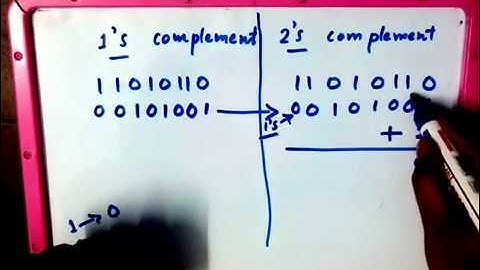 1's complement
11010110
00101001
1 → 0
2's complement
11010110
1's → 0010100
+